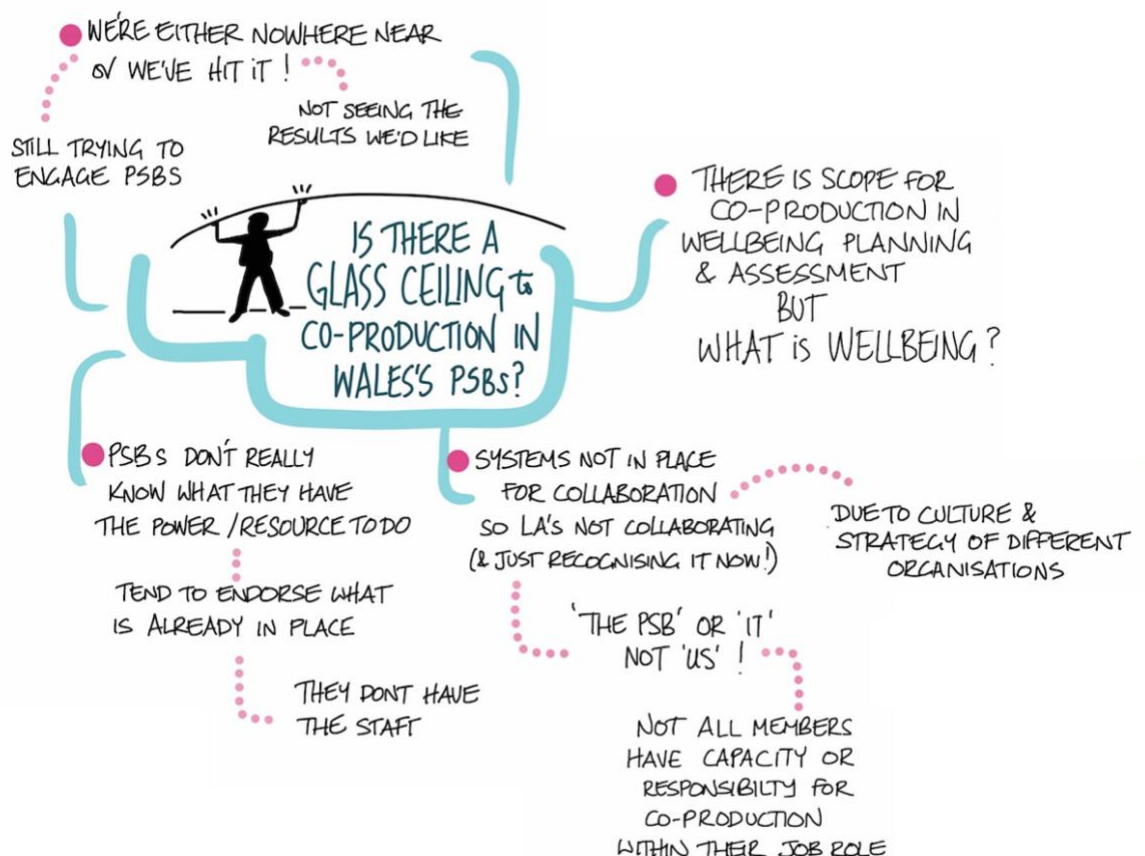 WE'RE EITHER NOWHERE NEAR
OR WE'VE HIT IT !
NOT SEEING THE
RESULTS WE'D LIKE
STILL TRYING TO
ENGAGE PSBS
IS THERE A
GLASS CEILING to
CO-PRODUCTION IN
WALES'S PSBs?
THERE IS SCOPE FOR
CO-PRODUCTION IN
WELLBEING PLANNING
& ASSESSMENT
BUT
WHAT is WELLBEING ?
PSBs DON'T REALLY
KNOW WHAT THEY HAVE
THE POWER /RESOURCE TO DO
TEND TO ENDORSE WHAT
IS ALREADY IN PLACE
THEY DONT HAVE
THE STAFF
SYSTEMS NOT IN PLACE
FOR COLLABORATION
SO LA'S NOT COLLABORATING
(& JUST RECOGNISING IT NOW!)
DUE TO CULTURE &
STRATEGY OF DIFFERENT
ORGANISATIONS
'THE PSB' OR 'IT'
NOT 'US' !
NOT ALL MEMBERS
HAVE CAPACITY OR
RESPONSIBILTY FOR
CO-PRODUCTION
WITHIN THEIR JOB ROLE